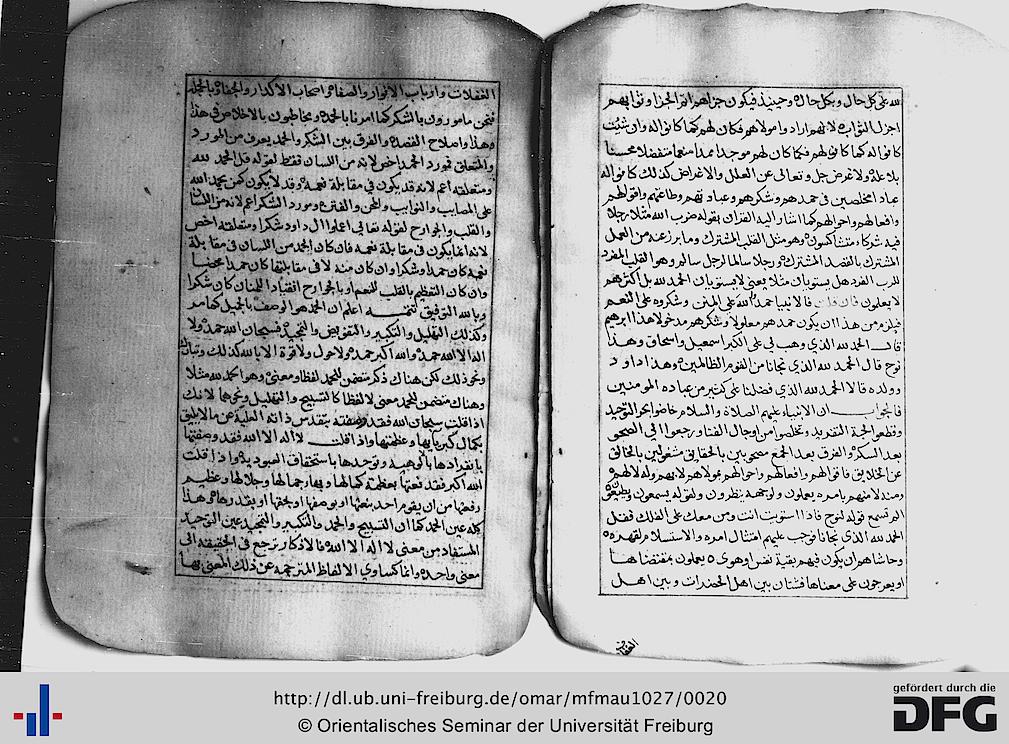 لله على كل حال وبكل حال وحينيذ فيكون جزاهم اتم الجزا وثوابهم
اجزل الثواب لانهم ارادوا مولاهم فكان لهم كما كانوا له وان شئت
كانوا له كما كان لهم فكما كان لهم موجدا ممدا منعما متفضلا محسنا
بلا علة ولا غرض جل وتعالى عن العلل والاغراض كذلك كانوا له
عبادا مخلصين في حمدهم وشكرهم وعبادتهم وطاعتهم واقوالهم
وافعالهم واحوالهم كما اشار اليه القران بقوله ضرب الله مثلا رجلا
فيه شركاء متشاكسون وهو مثل القلب المشترك وما برز عنه من العمل
المشترك بالقصد المشترك ورجلا سالما لرجل سالم وهو القلب المفرد
للرب الفرد هل يستويان مثلا يعني لا يستويان الحمد لله بل اكثرهم
لا يعلمون فان قلت فالانبيا حمدوا الله على المنن وشكروه على النعم
فيلزم من هذا ان يكون حمدهم معلولا وشكرهم مدخولا هذا ابرهيم
قال الحمد لله الذي وهب لي على الكبر اسمعيل واسحاق وهذا
نوح قال الحمد لله الذي نجانا من القوم الظالمين وهذا داود
وولده قالا الحمد لله الذي فضلنا على كثير من عباده المومنين
فالجواب ان الانبياء عليهم الصلاة والسلام خاضوا بحر التوحيد
وقطعوا لجة التفريد وتخلصوا من اوجال الفنا ورجعوا الى الصحو
بعد السكر والفرق بعد الجمع بين بالحقايق مشغولين بالخالق
عن الخلايق فاقوالهم وافعالهم واحوالهم بمولاهم لا بهم وله لا لهم
ومنه لا منهم بامره يعملون ولوجهه ينظرون ولقوله يسمعون
الم تسمع قوله لنوح فاذا استويت انت ومن معك على الفلك فقل
الحمد لله الذي نجانا فوجب عليهم امتثال امره والاستسلام لقهره
وحاشاهم ان يكون فيهم بقية نفس او هوى يعملون بمقتضاها
او يعرجون على معناها فشتان بين اهل الحضرات وبين اهل
الغفلات
الغفلات وارباب الانوار والصفا واصحاب الاكدار والجفا وبالجملة
فنحن مامورون بالشكر كما امرنا بالحمد ومخاطبون بالاخلاص في هذا
وهذا واصلاح القصد والفرق بين الشكر والحمد يعرف من المورد
والمتعلق فمورد الحمد اخص لانه من اللسان فقط لقوله قل الحمد لله
ومتعلقه اعم لانه قد يكون في مقابلة نعمة وقد لا يكون كمن يحمد الله
على المصايب والنوايب والمحن والفتن ومورد الشكر اعم لانه من اللسان
والقلب والجوارح لقوله تعالى اعملوا ال داود شكرا ومتعلقه اخص
لانه انما يكون في مقابلة نعمه فان كان الحمد من اللسان في مقابلة
نعمة كان حمدا وشكرا وان كان منه لا في مقابلتها كان حمدا محضا
وان كان التعظيم بالقلب للنعم او بالجوارح انقيادا للمنان كان شكرا
وبالله التوفيق تتمه اعلم ان الحمد هو الوصف بالجميل كما مر
وكذلك التهليل والتكبير والتفويض والتمجيد فسبحان الله حمد ولا
اله الا الله حمد والله اكبر حمد ولا حول ولا قوة الا بالله كذلك وتبارك
ونحو ذلك لكن هناك ذكر متضمن للحمد لفظا ومعنى وهو الحمد لله مثلا
وهناك متضمن للحمد معنى لا لفظا كالتسبيح والتهليل ونحوهما لانك
اذا قلت سبحان الله فقد وصفته بتقدس ذاته العلية عن ما لا يليق
بكمال كبريايها وعظمتها واذا قلت لا اله الا الله فقد وصفتها
بانفرادها بالوهيته وتوحدها باستحقاق العبودية واذا قلت
الله اكبر فقد نعتها بعظمة كمالها وبهاء جمالها وجلالها وعظيم
رفعتها من ان يقوم احد بنعتها او بوصفها او بحقها او بقدرها وهذا
كله عين الحمد كما ان التسبيح والحمد والتكبير والتمجيد عين التوحيد
المستفاد من معنى لا اله الا الله فالاذكار ترجع في الحقيقة الى
معنى واحد وانما الالفاظ المترجمة عن ذلك المعنى بها
http://dl.ub.uni-freiburg.de/omar/mfmau1027/0020
© Orientalisches Seminar der Universität Freiburg
gefördert durch die
DFG